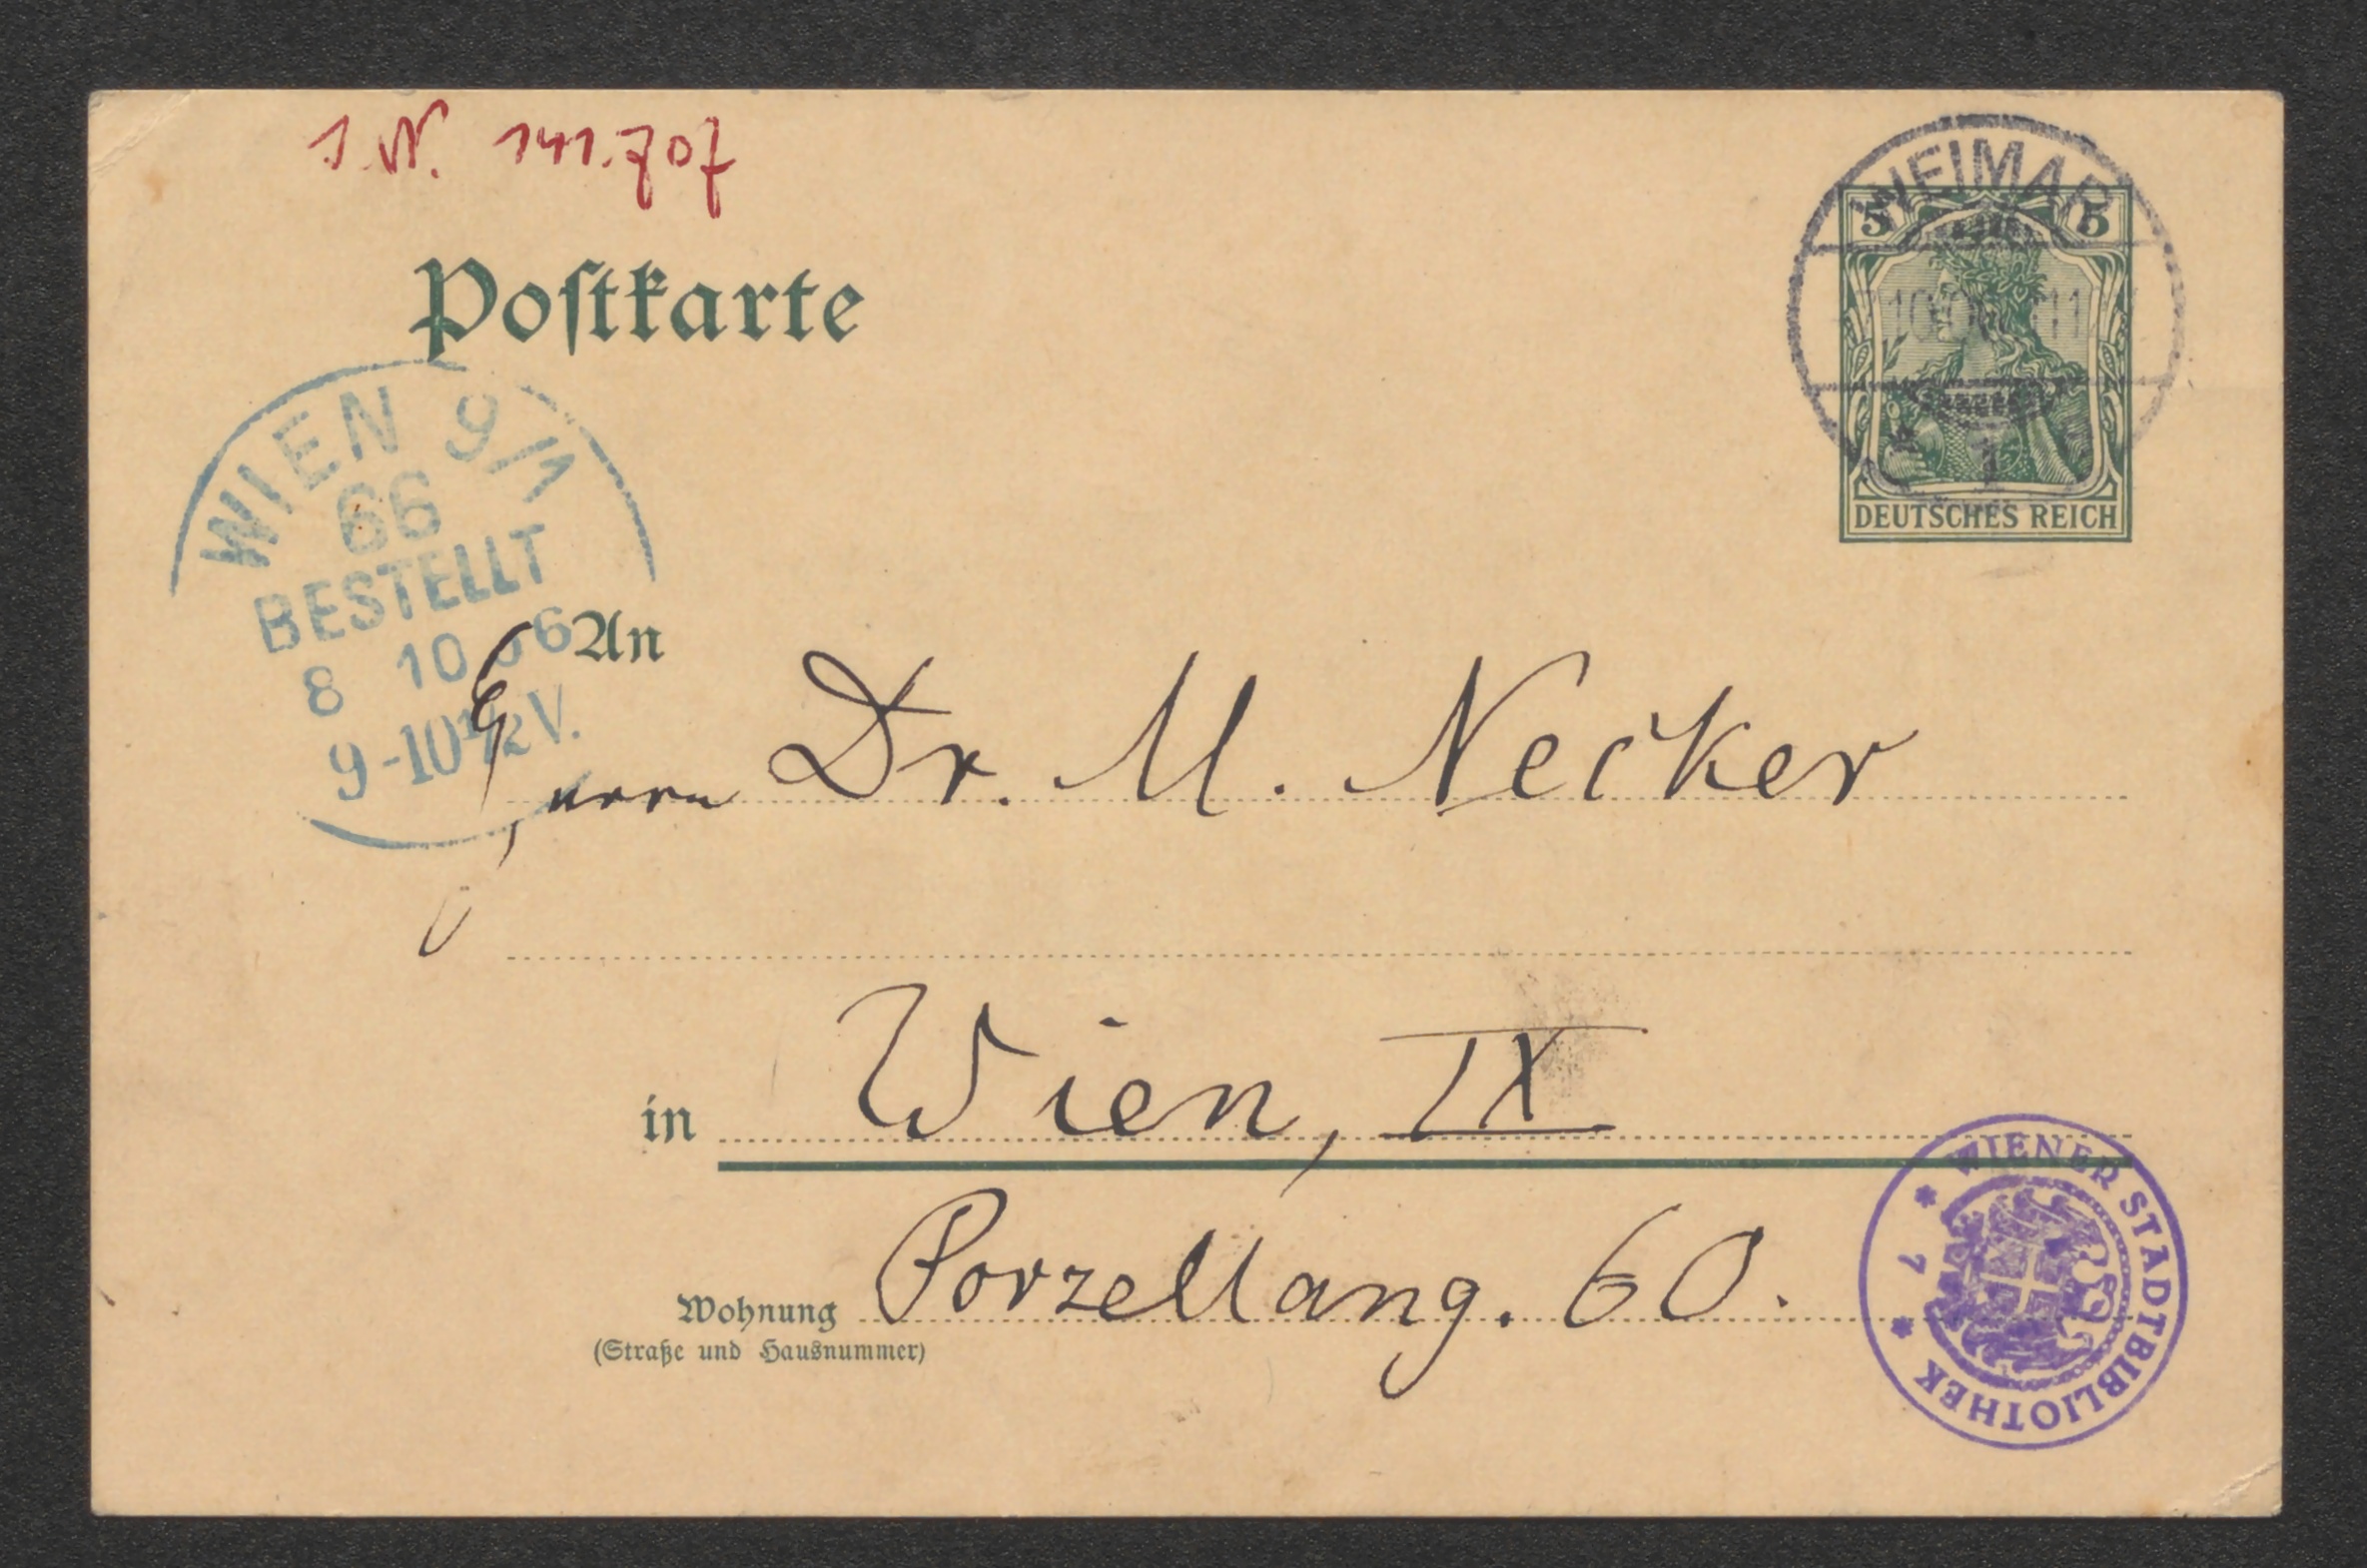 J.N. 141.707
WEIMAR
5 5
1
DEUTSCHES REICH
Postkarte
WIEN 9/1
66
BESTELLT
8 10 06
9-10½V.
An
Herrn Dr. M. Necker
in Wien, IX
Wohnung Porzellang. 60.
(Straße und Hausnummer)
WIENER STADTBIBLIOTHEK
* 7 *